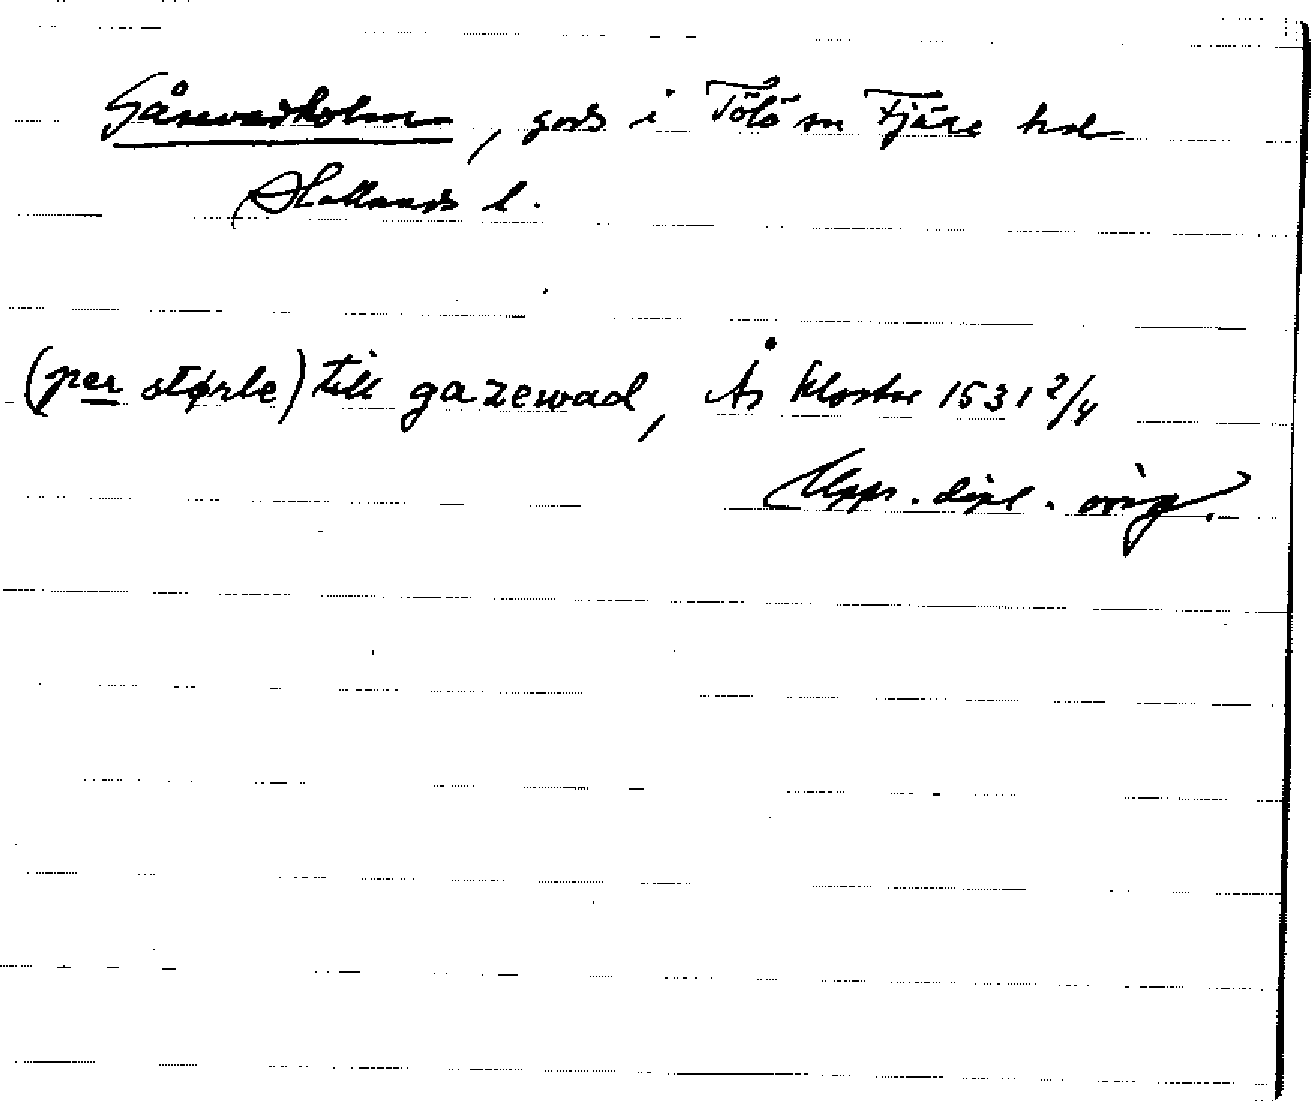 Gåsevadholm, gods i Tölö sn Fjäre hd
Hallands l.
(per størle) till gazewad, Ås kloster 1531 2/4
Upps. dipl. orig.